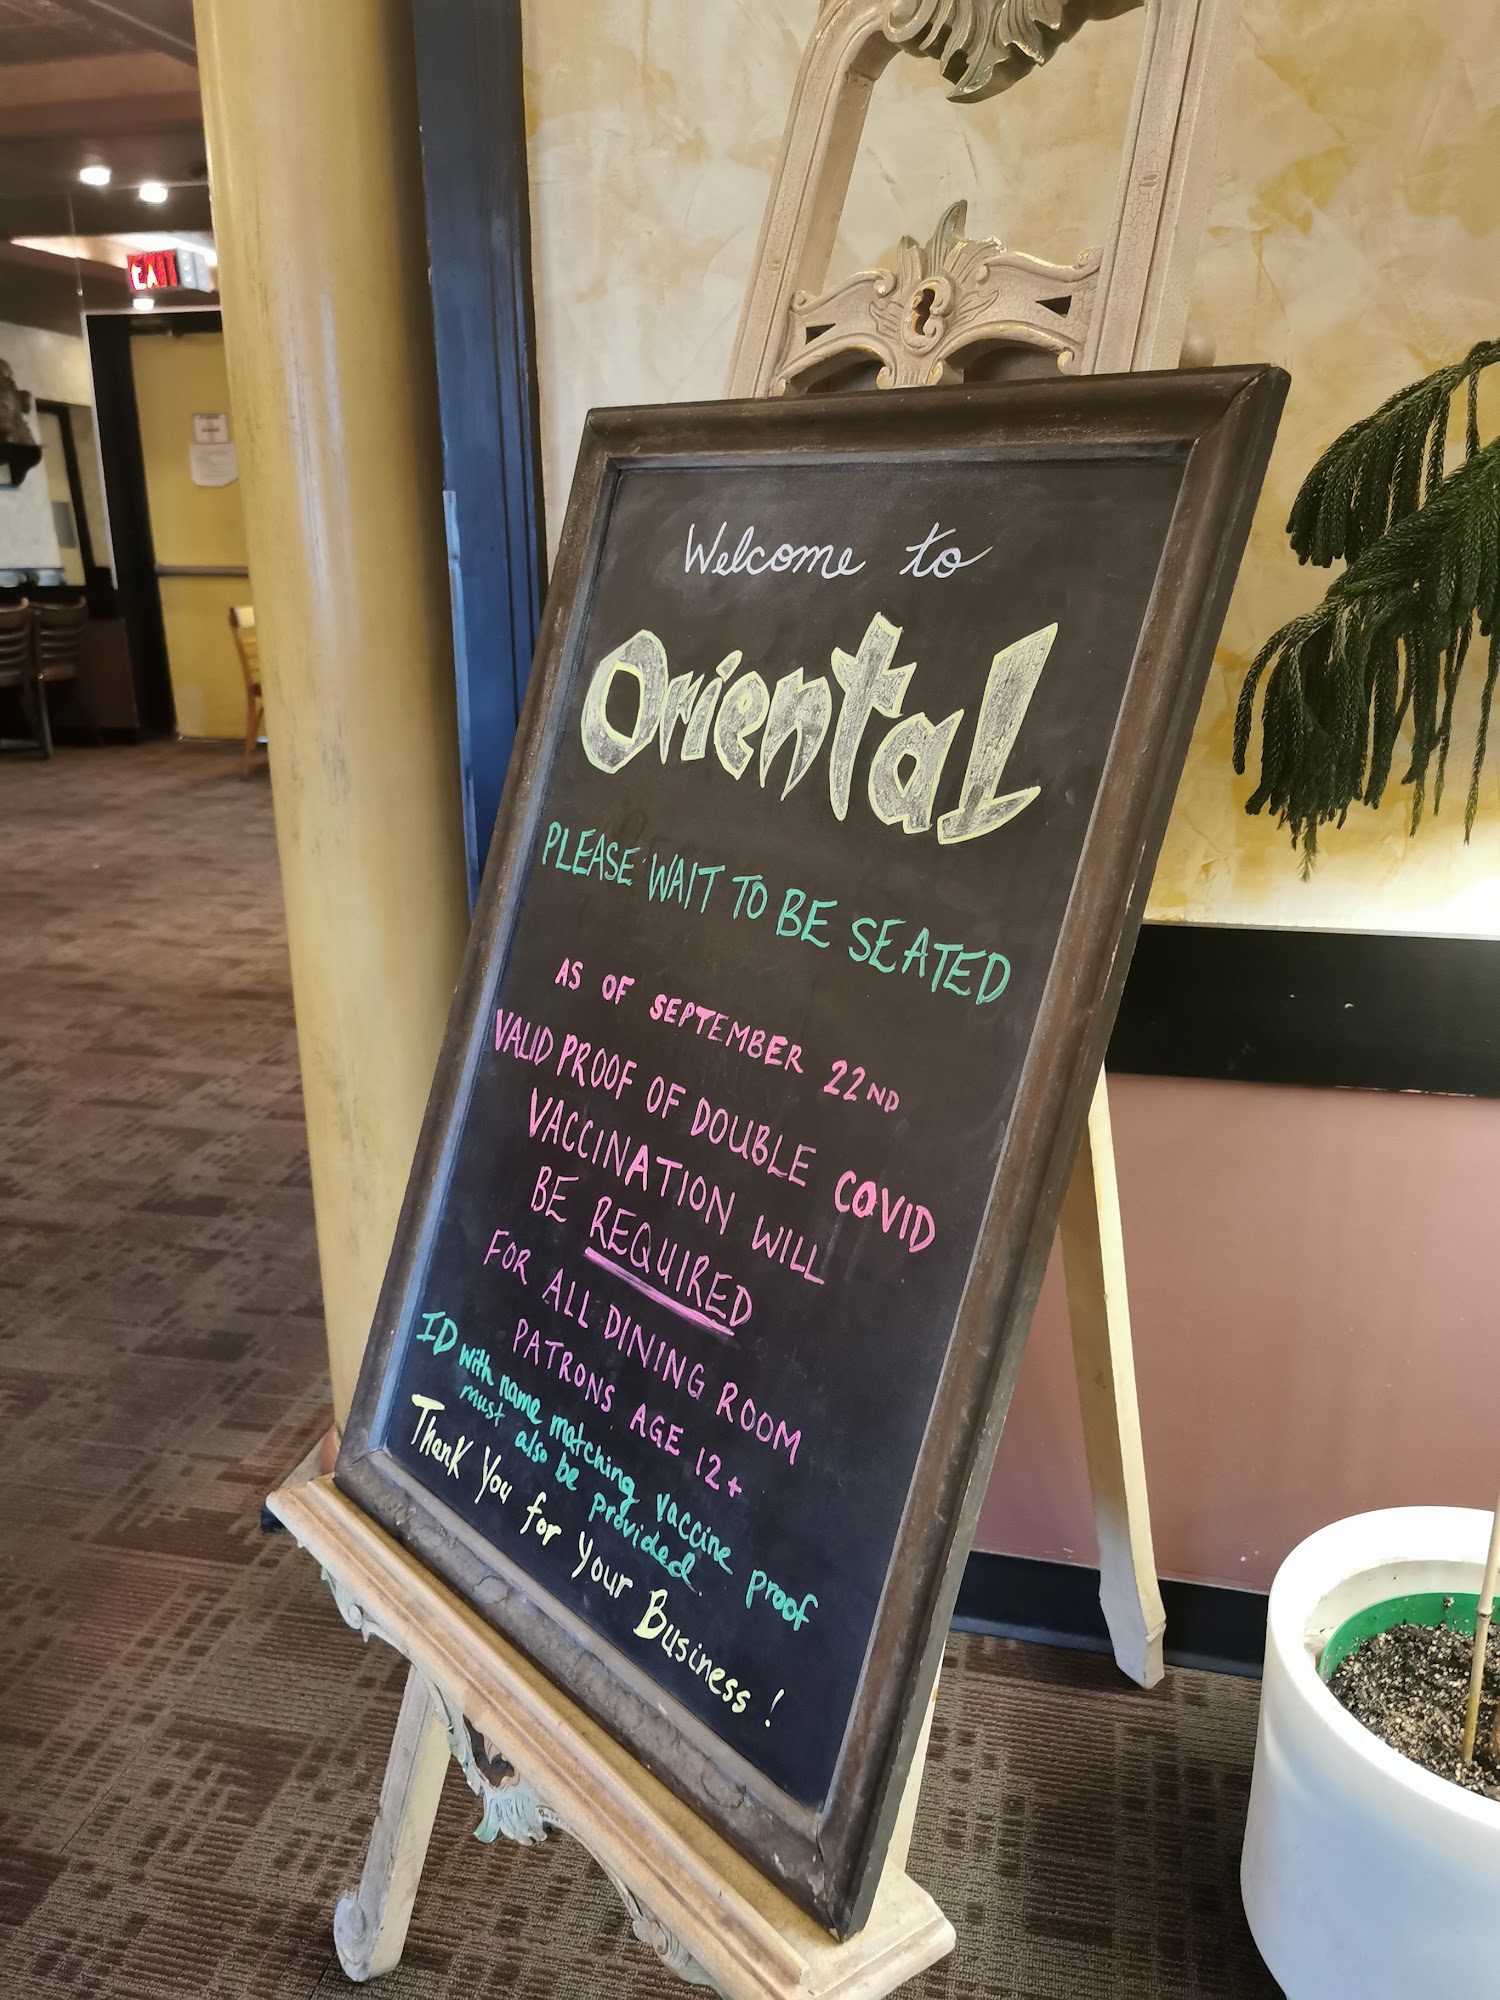 EXIT
Welcome to
Oriental
PLEASE WAIT TO BE SEATED
AS OF SEPTEMBER 22ND
VALID PROOF OF DOUBLE COVID
VACCINATION WILL
BE REQUIRED
FOR ALL DINING ROOM
PATRONS AGE 12+
ID with name matching vaccine proof
must also be provided.
Thank You for Your Business!